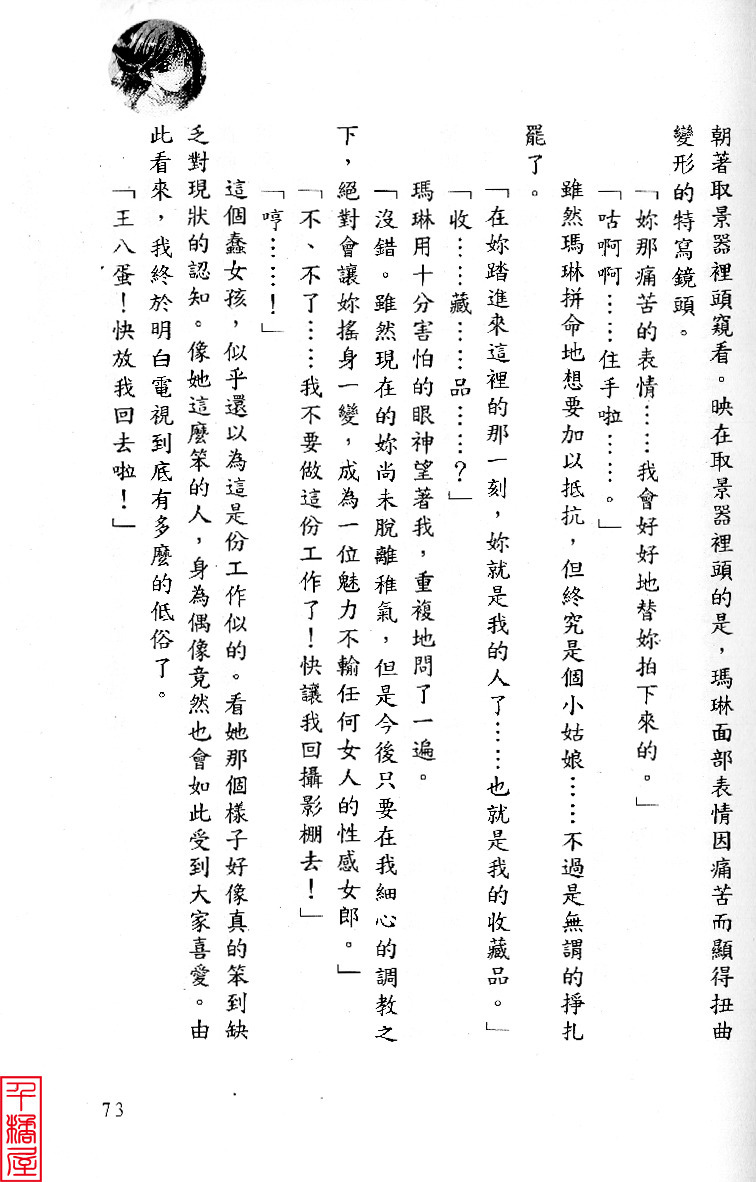 朝著取景器裡頭窺看。映在取景器裡頭的是，瑪琳面部表情因痛苦而顯得扭曲
變形的特寫鏡頭。
「妳那痛苦的表情……我會好好地替妳拍下來的。」
「咕啊啊……住手啦……。」
雖然瑪琳拼命地想要加以抵抗，但終究是個小姑娘……不過是無謂的掙扎
罷了。
「在妳踏進來這裡的那一刻，妳就是我的人了……也就是我的收藏品。」
「收……藏……品……？」
瑪琳用十分害怕的眼神望著我，重複地問了一遍。
「沒錯。雖然現在的妳尚未脫離稚氣，但是今後只要在我細心的調教之
下，絕對會讓妳搖身一變，成為一位魅力不輸任何女人的性感女郎。」
「不、不了……我不要做這份工作了！快讓我回攝影棚去！」
「哼……！」
這個蠢女孩，似乎還以為這是份工作似的。看她那個樣子好像真的笨到缺
乏對現狀的認知。像她這麼笨的人，身為偶像竟然也會如此受到大家喜愛。由
此看來，我終於明白電視到底有多麼的低俗了。
「王八蛋！快放我回去啦！」
73
千橘屋